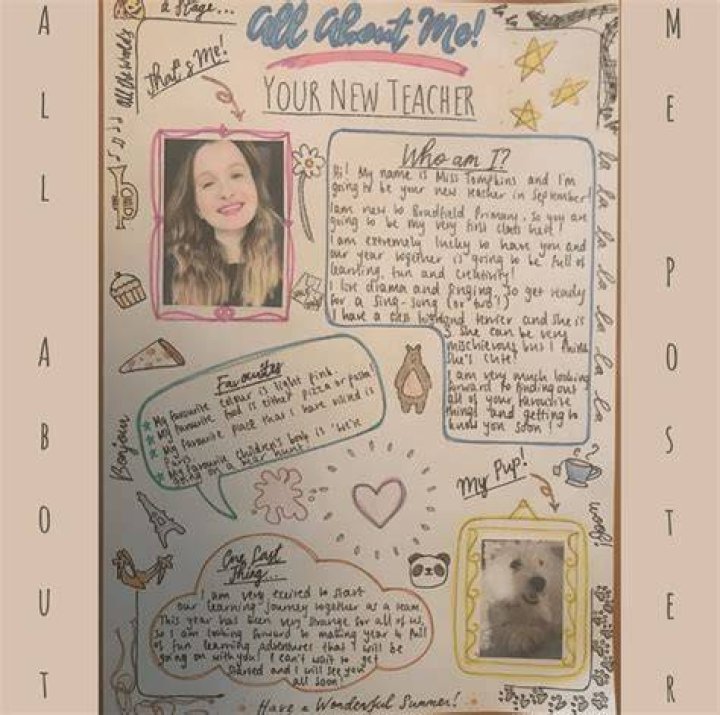 ALL ABOUT
ME POSTER
All the World's
a Stage...
All About Me!
That's Me!
YOUR NEW TEACHER
Who am I?
Hi! My name is Miss Tompkins and I'm
going to be your new teacher in September!
I am new to Bradfield Primary, so you are
going to be my very first class here!
I am extremely lucky to have you and
our year together is going to be full of
learning, fun and creativity!
I love drama and singing, so get ready
for a sing-song (or two!)
I have a west highland terrier and she is
3. She can be very
mischievous but I think
she's cute!
I am very much looking
forward to finding out
all of your favourite
things and getting to
know you soon!
la la la la la la la la
Favourites
My favourite colour is light pink.
My favourite food is either pizza or pasta!
My favourite place that I have visited is
Paris.
My favourite children's book is 'We're
going on a bear hunt'.
Bonjour
My Pup!
woof!
One Last
Thing...
I am very excited to start
our learning journey together as a team.
This year has been very strange for all of us,
so I am looking forward to making year 4 full
of fun learning adventures that I will be
going on with you! I can't wait to get
started and I will see you
all soon!
Have a Wonderful Summer!